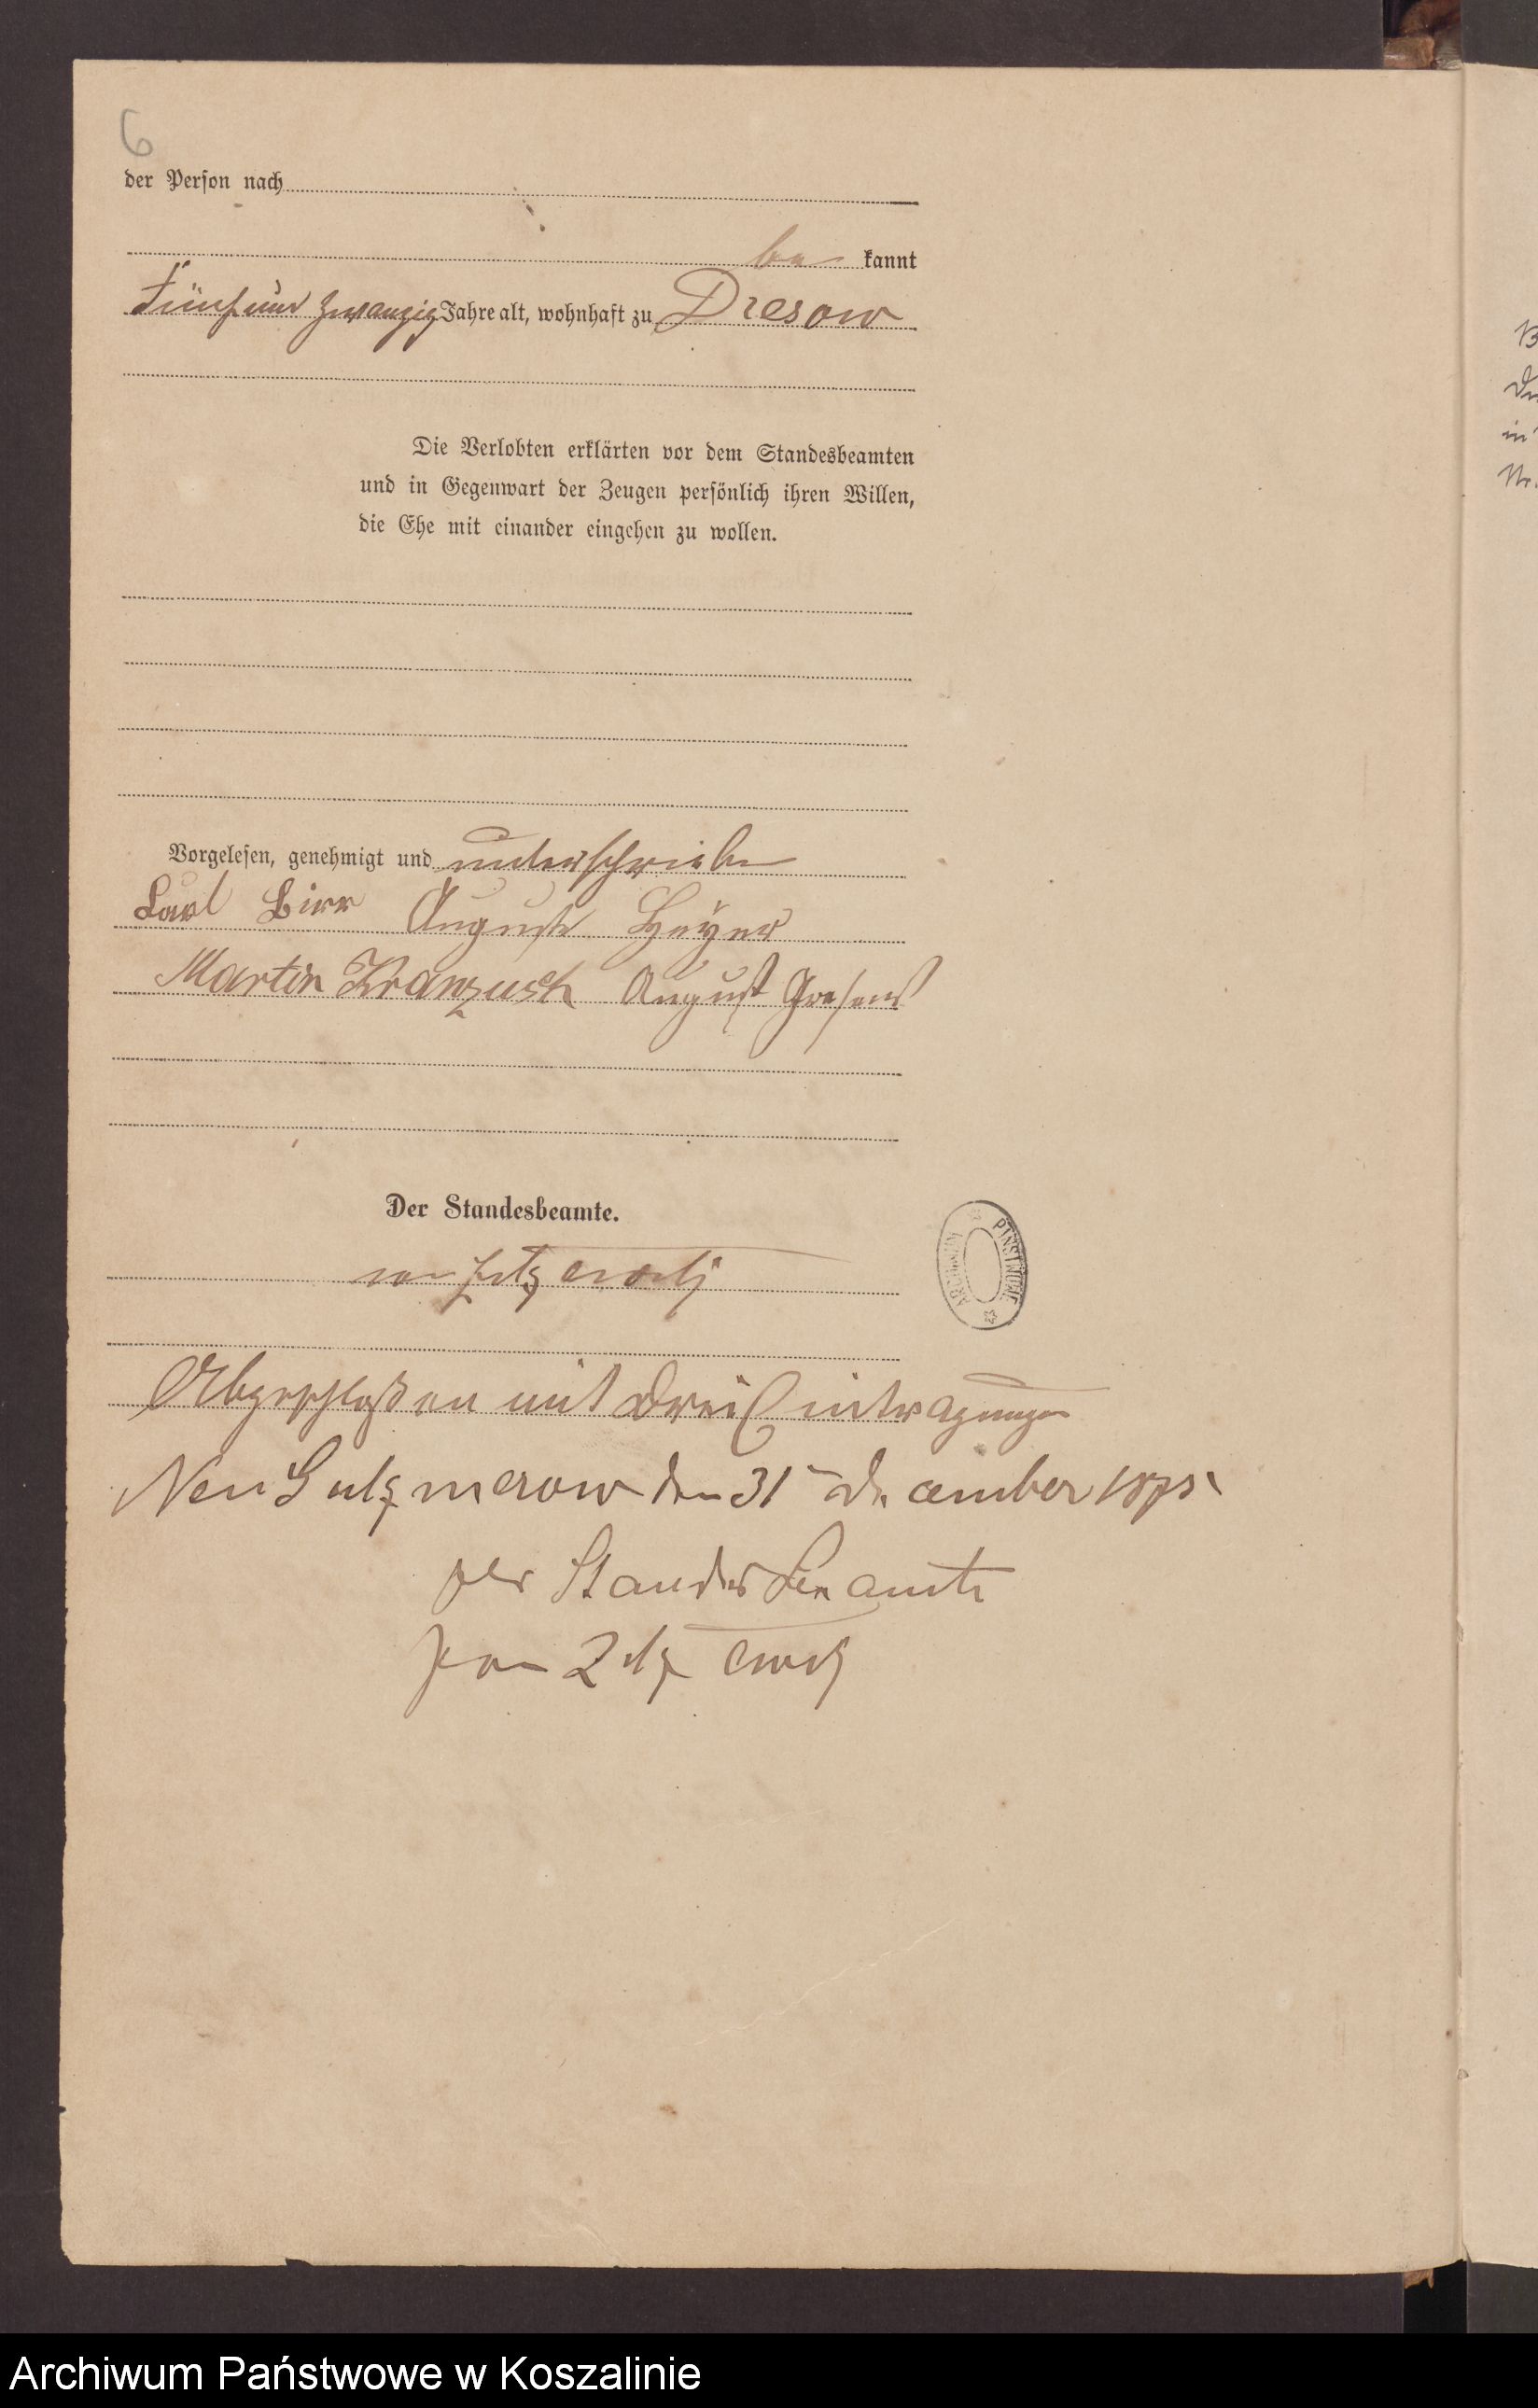 6
der Person nach
be kannt
Fünfund zwanzig Jahre alt, wohnhaft zu Dresow
Die Verlobten erklärten vor dem Standesbeamten
und in Gegenwart der Zeugen persönlich ihren Willen,
die Ehe mit einander eingehen zu wollen.
Vorgelesen, genehmigt und unterschrieben
Carl Birr Auguste Heyer
Martin Kranzusch August
Der Standesbeamte.
von Zitzewitz
ARCHIWUM PAŃSTWOWE
Abgeschloßen mit drei Eintragungen
Neu Gutzmerow den 31ten December 1875
Der Standesbeamte
von Zitzewitz
Nr.
Archiwum Państwowe w Koszalinie